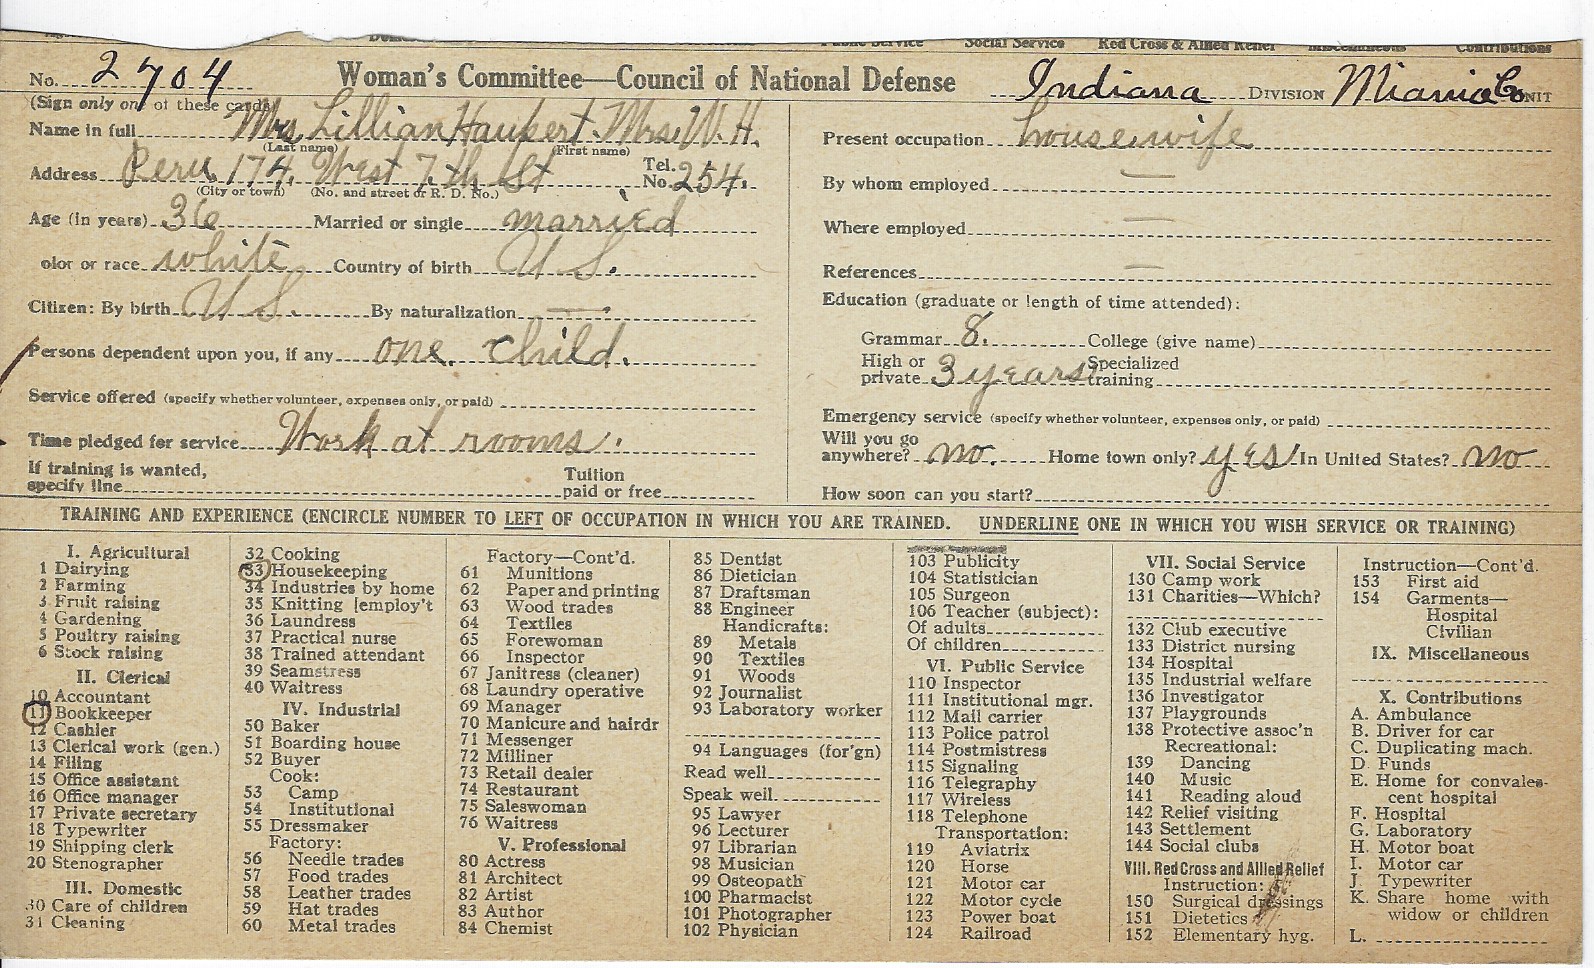 Public Service Social Service Red Cross & Allied Relief Miscellaneous Contributions
No. 2704 Woman's Committee—Council of National Defense Indiana DIVISION Miami Co. UNIT
(Sign only one of these cards)
Name in full Mrs. Lillian Haupert. Mrs. W. H.
(Last name) (First name)
Address Peru. 174. West 7th St Tel. No. 254.
(City or town) (No. and street or R. D. No.)
Age (in years) 36 Married or single married
olor or race white Country of birth U. S.
Citizen: By birth U. S. By naturalization —
Persons dependent upon you, if any one. child.
Service offered (specify whether volunteer, expenses only, or paid)
Time pledged for service Work at rooms.
If training is wanted,
specify line
Tuition
paid or free
Present occupation housewife
By whom employed —
Where employed —
References —
Education (graduate or length of time attended):
Grammar 8. College (give name)
High or
private 3 years
Specialized
training
Emergency service (specify whether volunteer, expenses only, or paid)
Will you go
anywhere? no. Home town only? yes In United States? no
How soon can you start?
TRAINING AND EXPERIENCE (ENCIRCLE NUMBER TO LEFT OF OCCUPATION IN WHICH YOU ARE TRAINED. UNDERLINE ONE IN WHICH YOU WISH SERVICE OR TRAINING)
I. Agricultural
1 Dairying
2 Farming
3 Fruit raising
4 Gardening
5 Poultry raising
6 Stock raising
II. Clerical
10 Accountant
11 Bookkeeper
12 Cashier
13 Clerical work (gen.)
14 Filing
15 Office assistant
16 Office manager
17 Private secretary
18 Typewriter
19 Shipping clerk
20 Stenographer
III. Domestic
30 Care of children
31 Cleaning
32 Cooking
33 Housekeeping
34 Industries by home
35 Knitting [employ't
36 Laundress
37 Practical nurse
38 Trained attendant
39 Seamstress
40 Waitress
IV. Industrial
50 Baker
51 Boarding house
52 Buyer
Cook:
53 Camp
54 Institutional
55 Dressmaker
Factory:
56 Needle trades
57 Food trades
58 Leather trades
59 Hat trades
60 Metal trades
Factory—Cont'd.
61 Munitions
62 Paper and printing
63 Wood trades
64 Textiles
65 Forewoman
66 Inspector
67 Janitress (cleaner)
68 Laundry operative
69 Manager
70 Manicure and hairdr
71 Messenger
72 Milliner
73 Retail dealer
74 Restaurant
75 Saleswoman
76 Waitress
V. Professional
80 Actress
81 Architect
82 Artist
83 Author
84 Chemist
85 Dentist
86 Dietician
87 Draftsman
88 Engineer
Handicrafts:
89 Metals
90 Textiles
91 Woods
92 Journalist
93 Laboratory worker
94 Languages (for'gn)
Read well
Speak well
95 Lawyer
96 Lecturer
97 Librarian
98 Musician
99 Osteopath
100 Pharmacist
101 Photographer
102 Physician
103 Publicity
104 Statistician
105 Surgeon
106 Teacher (subject):
Of adults
Of children
VI. Public Service
110 Inspector
111 Institutional mgr.
112 Mail carrier
113 Police patrol
114 Postmistress
115 Signaling
116 Telegraphy
117 Wireless
118 Telephone
Transportation:
119 Aviatrix
120 Horse
121 Motor car
122 Motor cycle
123 Power boat
124 Railroad
VII. Social Service
130 Camp work
131 Charities—Which?
132 Club executive
133 District nursing
134 Hospital
135 Industrial welfare
136 Investigator
137 Playgrounds
138 Protective assoc'n
Recreational:
139 Dancing
140 Music
141 Reading aloud
142 Relief visiting
143 Settlement
144 Social clubs
VIII. Red Cross and Allied Relief
Instruction:
150 Surgical dressings
151 Dietetics
152 Elementary hyg.
Instruction—Cont'd.
153 First aid
154 Garments—
Hospital
Civilian
IX. Miscellaneous
X. Contributions
A. Ambulance
B. Driver for car
C. Duplicating mach.
D. Funds
E. Home for convales-
cent hospital
F. Hospital
G. Laboratory
H. Motor boat
I. Motor car
J. Typewriter
K. Share home with
widow or children
L.